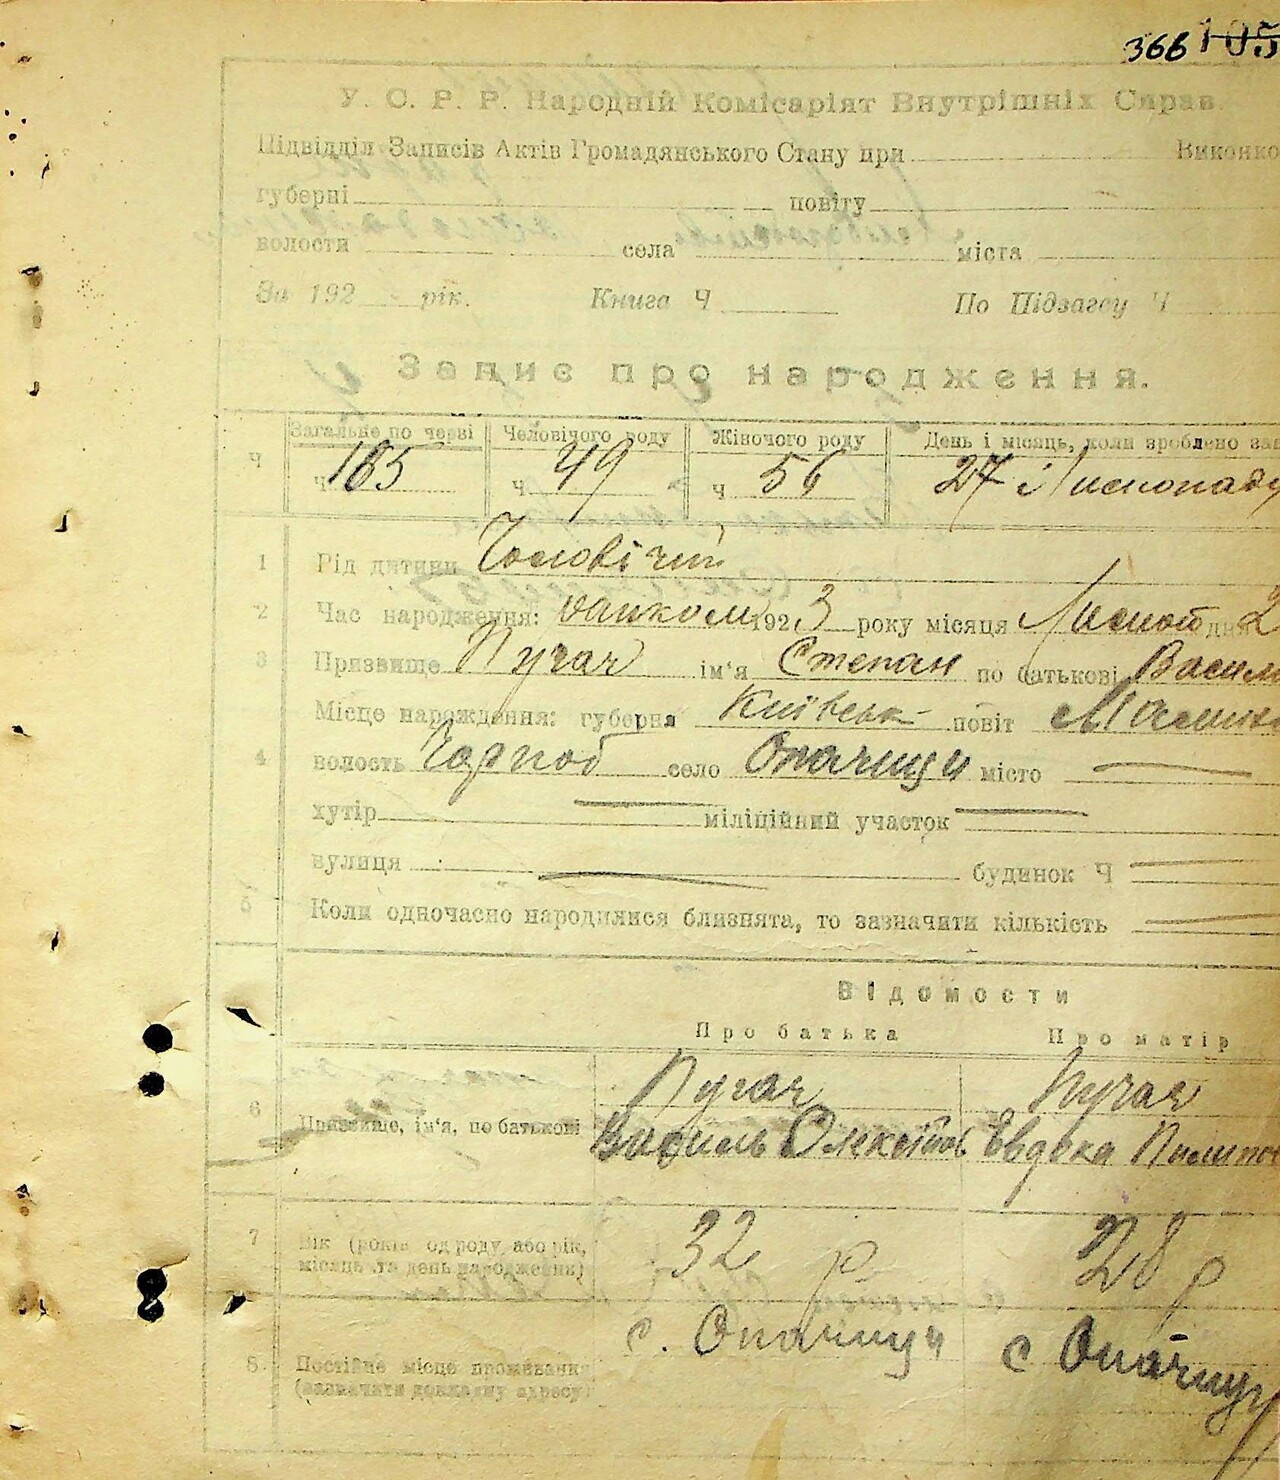 366 105
У. С. Р. Р. Народній Комісаріят Внутрішніх Справ.
Підвідділ Записів Актів Громадянського Стану при Виконко
губерні повіту
волости села міста
За 192 рік. Книга Ч По Підзагсу Ч
Запис про народження.
Загальне по черві Человічого роду Жіночого роду День і місяць, коли зроблено зап
Ч ч 105 ч 49 ч 56 27 Листопаду
1 Рід дитини Чоловічий
2 Час народження: ранком 1923 року місяця Листоп дня 2
3 Прізвище Пугач ім'я Степан по батькові Васил
Місце народження: губерня Київськ повіт
4 волость Чорноб село Опачичи місто —
хутір — міліційний участок —
вулиця — будинок Ч —
5 Коли одночасно народилися близнята, то зазначити кількість —
Відомости
Про батька Про матір
Пугач Пугач
6 Призвище, ім'я, по батькові Василь Олексійов Євдока Пилипов
7 Вік (років од роду або рік, місяць та день народження) 32 р 28 р
8. Постійне місце проживання (зазначити докладну адресу) с. Опачичи с Опачичи